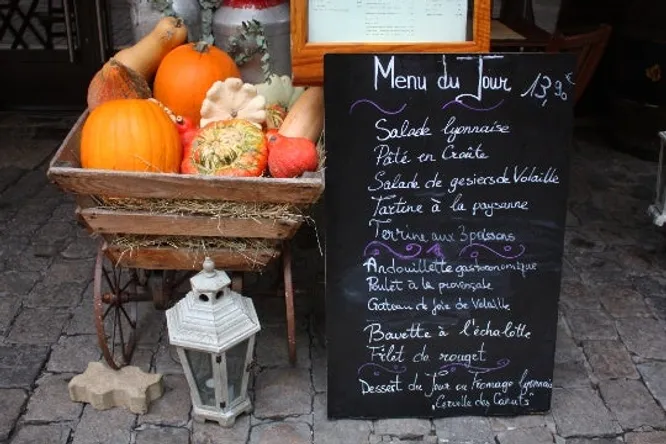 Menu du Jour 13,90 €
Salade lyonnaise
Pâté en Croâte
Salade de gesiers de Volaille
Tartine à la paysanne
Terrine aux 3 poissons
Andouillette gastronomique
Poulet à la provençale
Gateau de foie de Volaille
Bavette à l'échalotte
Filet de rouget
Dessert du Jour ou Fromage Lyonnais
"Cervelle des Canuts"